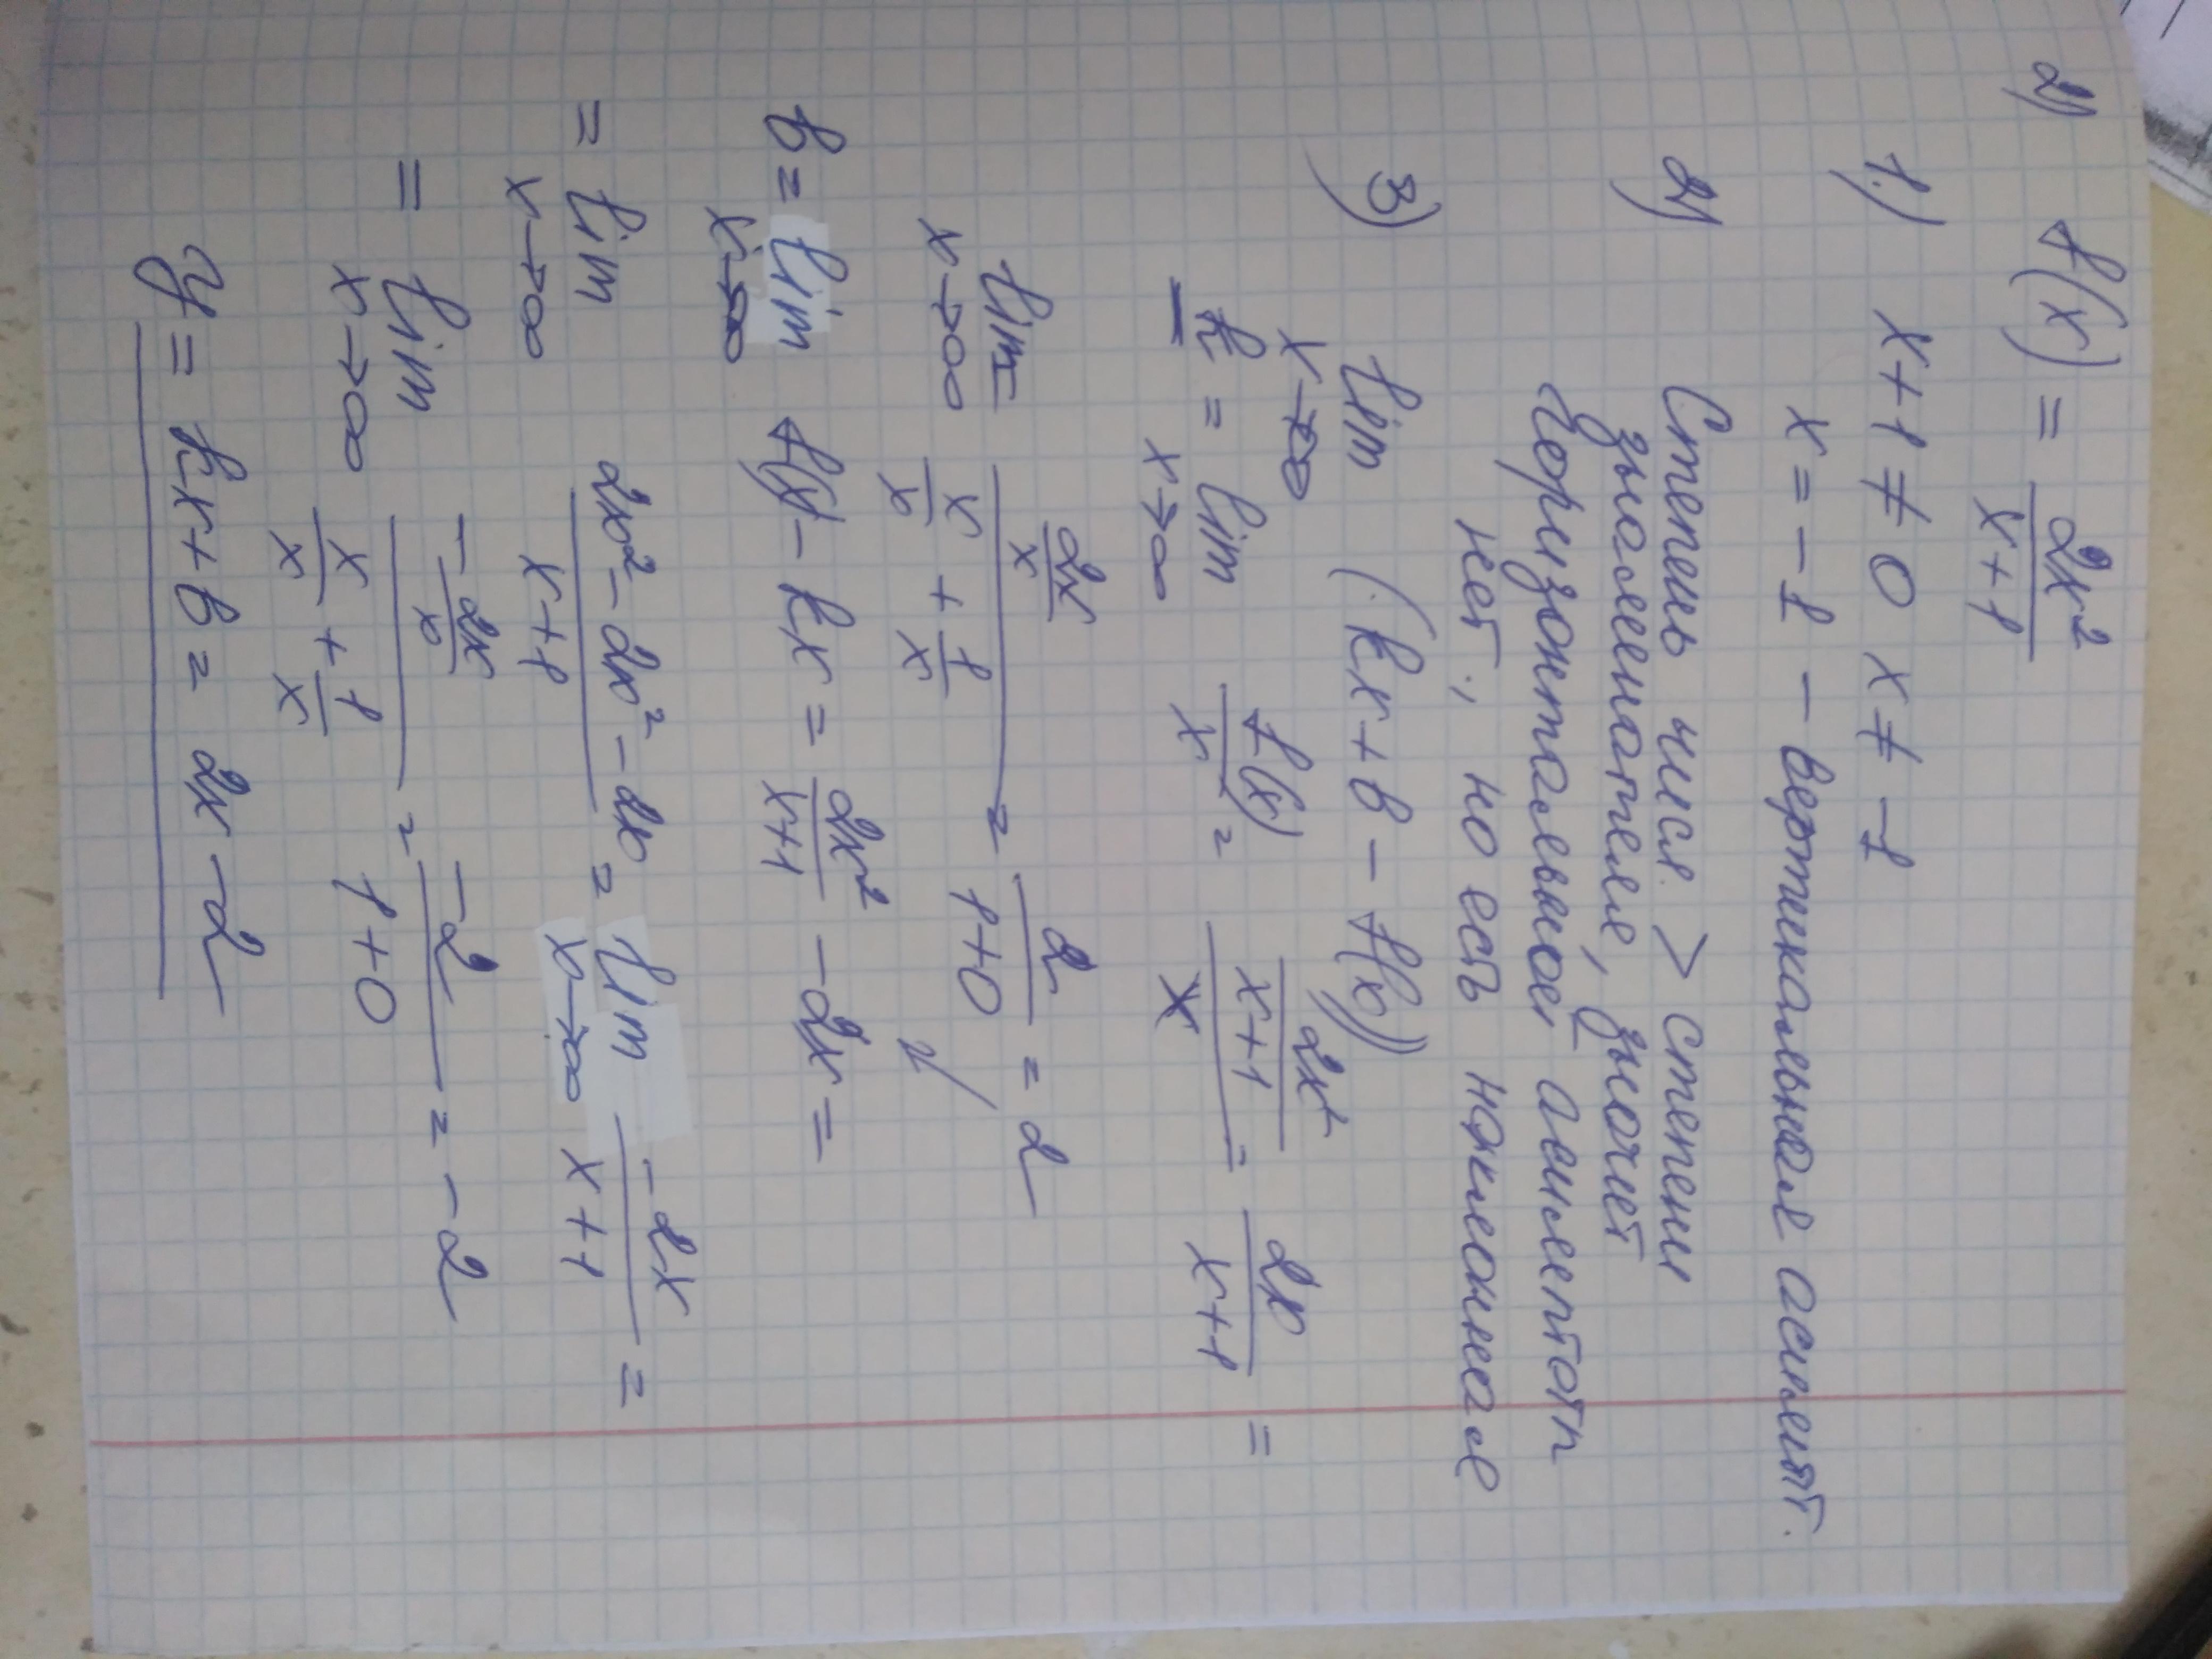 2) f(x) = 2x²/(x+1)
1.) x+1 ≠ 0 x ≠ -1
x = -1 - вертикальная асимпт.
2) Степень числ. > степени
знаменателя, значет
горизонтальной асимптоты
нет, но есть наклонная
3) lim x→∞ (kx+b - f(x))
k = lim x→∞ f(x)/x = (2x²/(x+1))/x = 2x/(x+1) =
lim x→∞ = (2x/x)/(x/x + 1/x) = 2/(1+0) = 2
b = lim x→∞ f(x) - kx = 2x²/(x+1) - 2x =
= lim x→∞ (2x² - 2x² - 2x)/(x+1) = lim x→∞ -2x/(x+1) =
= lim x→∞ (-2x/x)/(x/x + 1/x) = -2/(1+0) = -2
y = kx+b = 2x-2